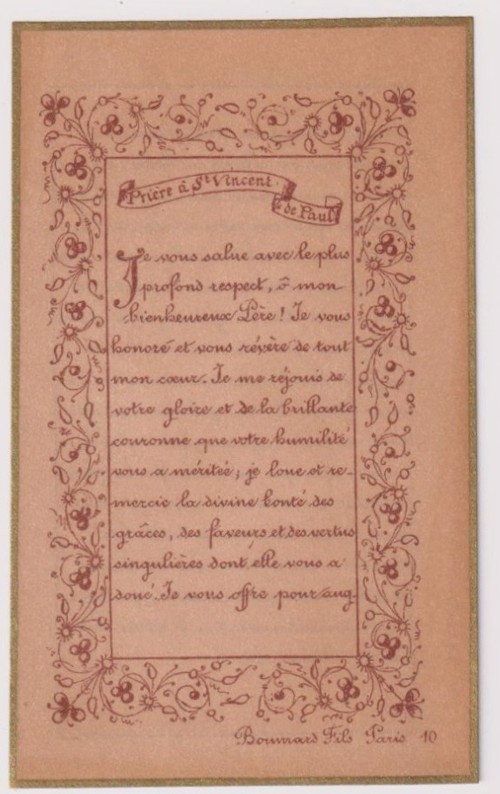 Prière à St Vincent
de Paul
Je vous salue avec le plus
profond respect, ô mon
bienheureux Père ! Je vous
honore et vous révère de tout
mon cœur. Je me réjouis de
votre gloire et de la brillante
couronne que votre humilité
vous a méritée ; je loue et re-
mercie la divine bonté des
grâces, des faveurs et des vertus
singulières dont elle vous a
doué. Je vous offre pour aug-
Boumard Fils Paris 10